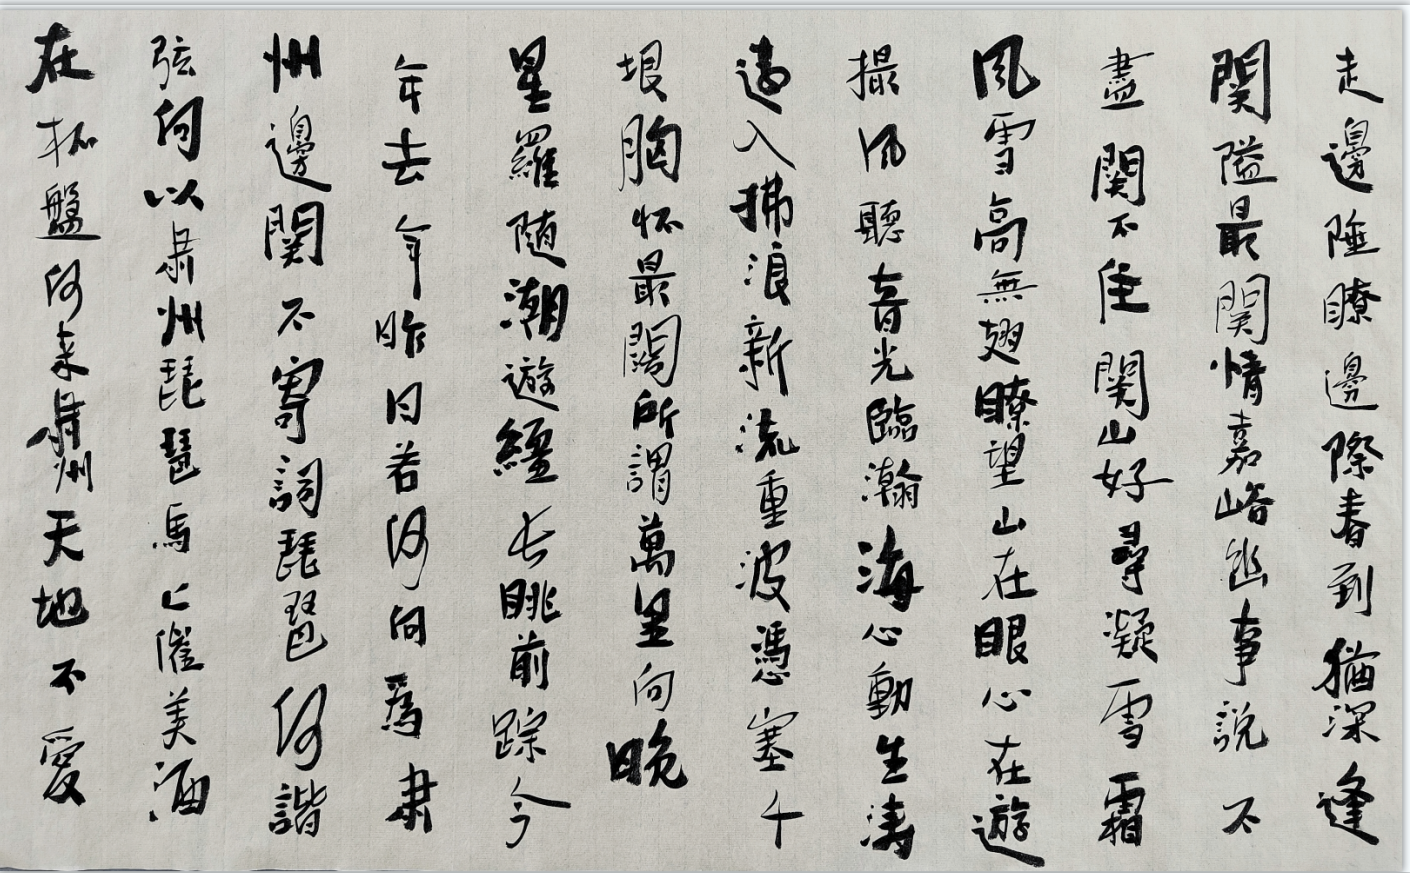 走邊陲瞭邊際春到猶深逢
關隘最關情嘉峪幽事說不
盡關不住關山好尋凝雪霜
風雪高無翅瞭望山在眼心在遊
撮風聽音光臨瀚海心動生濤
遠入拂浪新流重波憑塞千
垠胸怀最闊所謂萬里向晚
星羅随潮遊纏长眺前踪今
年去年昨日若何向爲肅
州邊關不寄詞琵琶何諧
弦何以肅州琵琶馬上催美酒
在杯盤何来肅州天地不愛